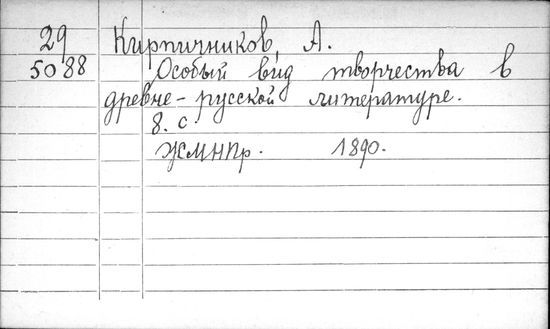 29 Кирпичников, А.
5088 Особый вид творчества в
древне-русской литературе.
8. с.
ЖМНПр. 1890.